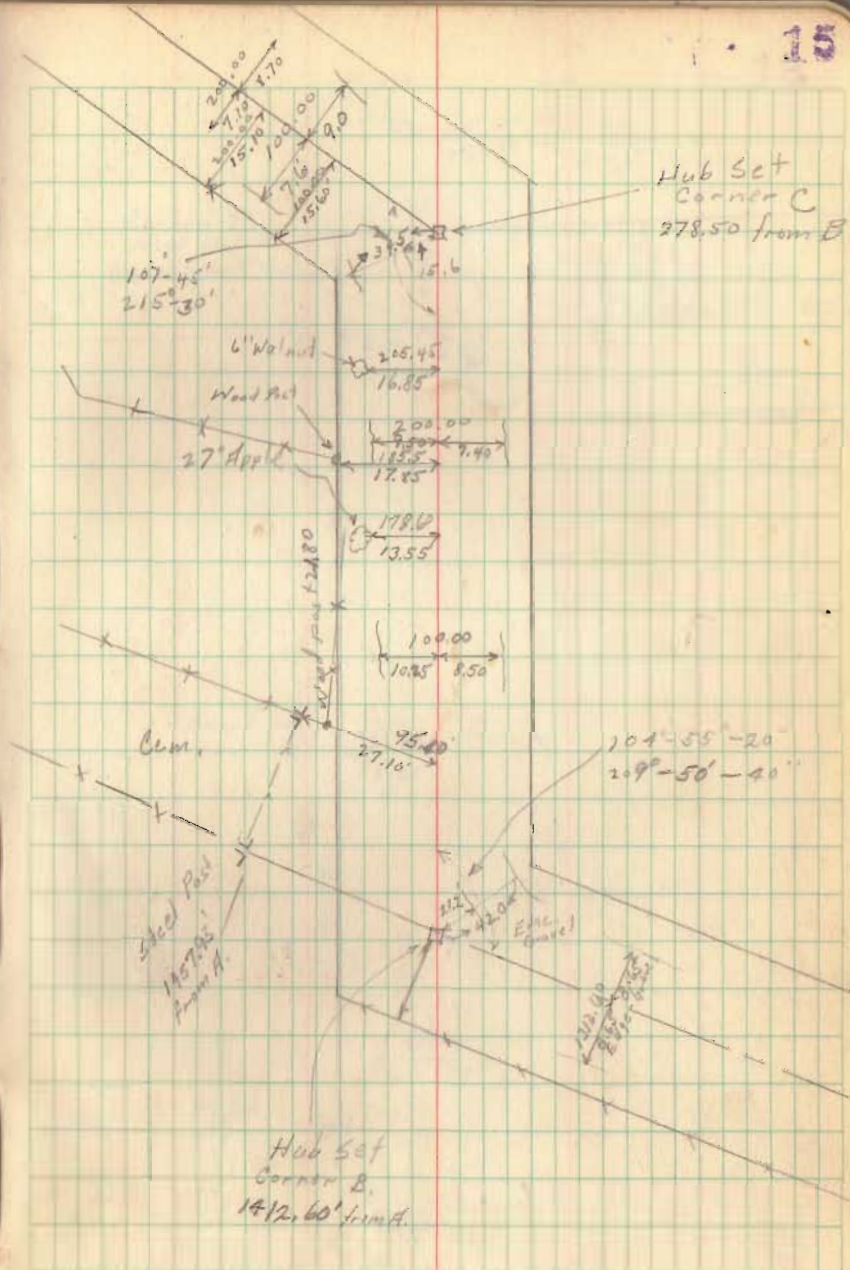 15
200.00
8.70
7.10'
200.00
15.10'
100.00
9.0
7.6'
100.00
15.60'
Hub Set
Corner C
278.50 from B
15.6
107°-45'
215°-30'
6" Walnut
205.45
16.85
Wood Post
200.00
9.50
9.40
185.5
17.85
27" Apple
178.6
13.55
Wood post +21.80
100.00
10.25
8.50
Cem.
27.10'
104°-55'-20"
209°-50'-40"
Steel Post
1457.93'
from A.
21.2'
42.0
Edge
Gravel
Hub Set
Corner B.
1412.60' from A.